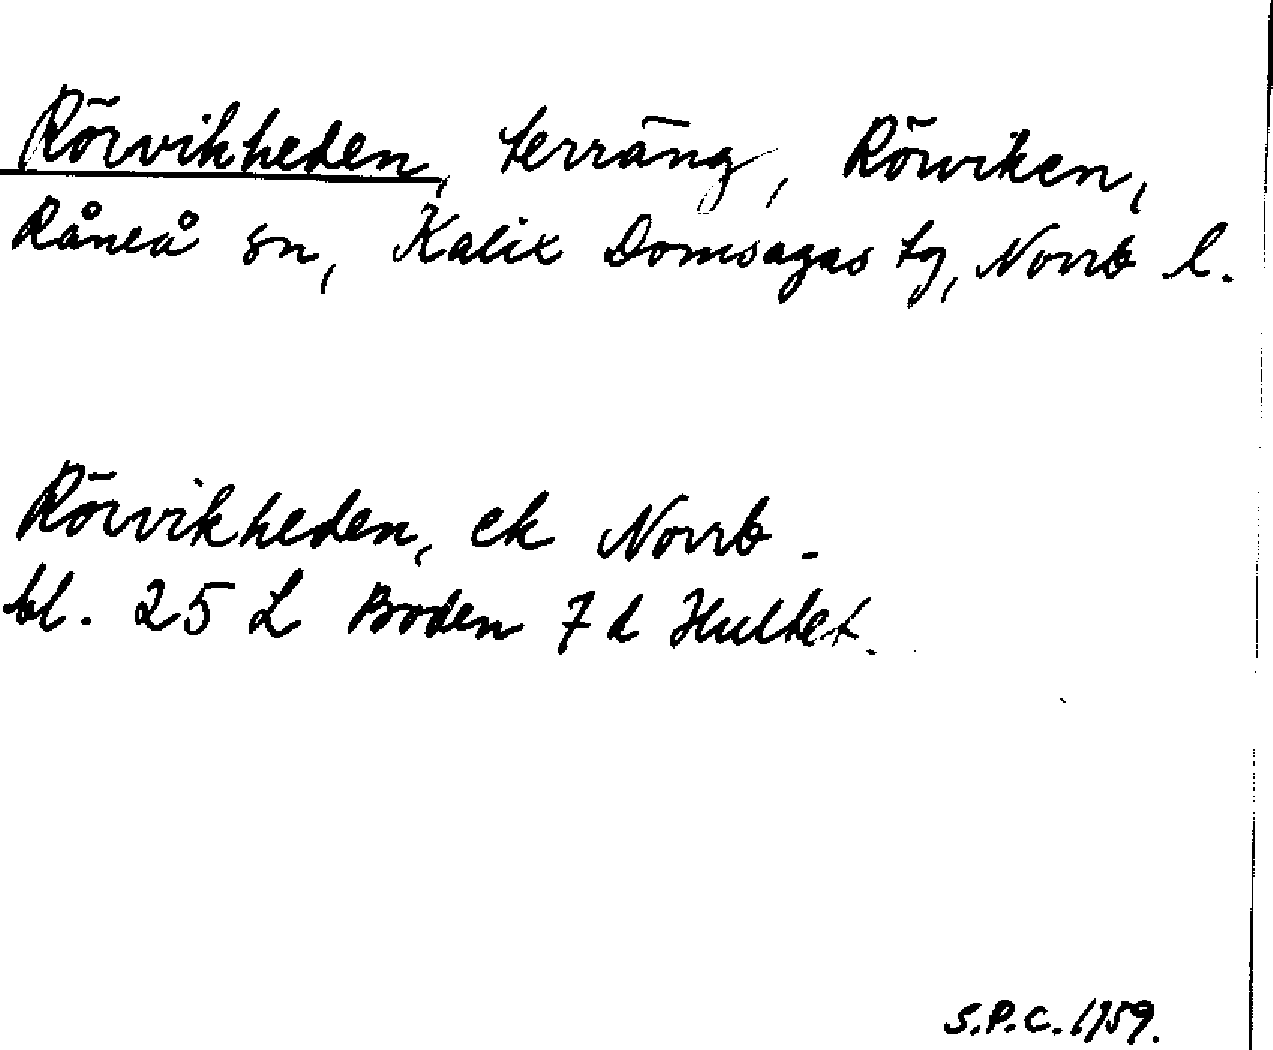 Rörvikheden, terräng, Rörviken,
Råneå sn, Kalix Domsagas tg, Norrb l.
Rörvikheden, ek Norrb -
bl. 25 L Boden 7 d Hultet.
S.P.C. 1959.